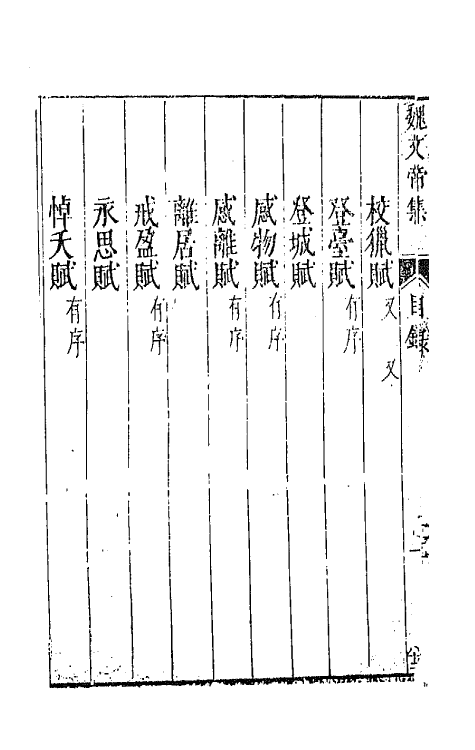 魏文帝集 目錄
校獵賦 又 又
登臺賦 有序
登城賦
感物賦 有序
感離賦 有序
離居賦
戒盈賦 有序
永思賦
悼夭賦 有序